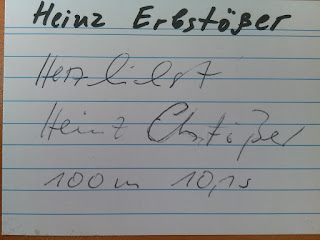 Heinz Erbstößer
Herzlichst
Heinz Erbstößer
100m 10,1s